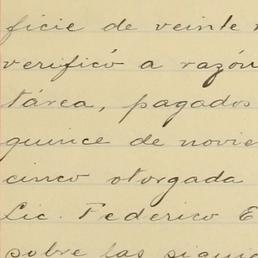 ficie de veinte
verificó a razón
tárea, pagados
quince de novie
cinco otorgada
Lic. Federico E
sobre las siguie